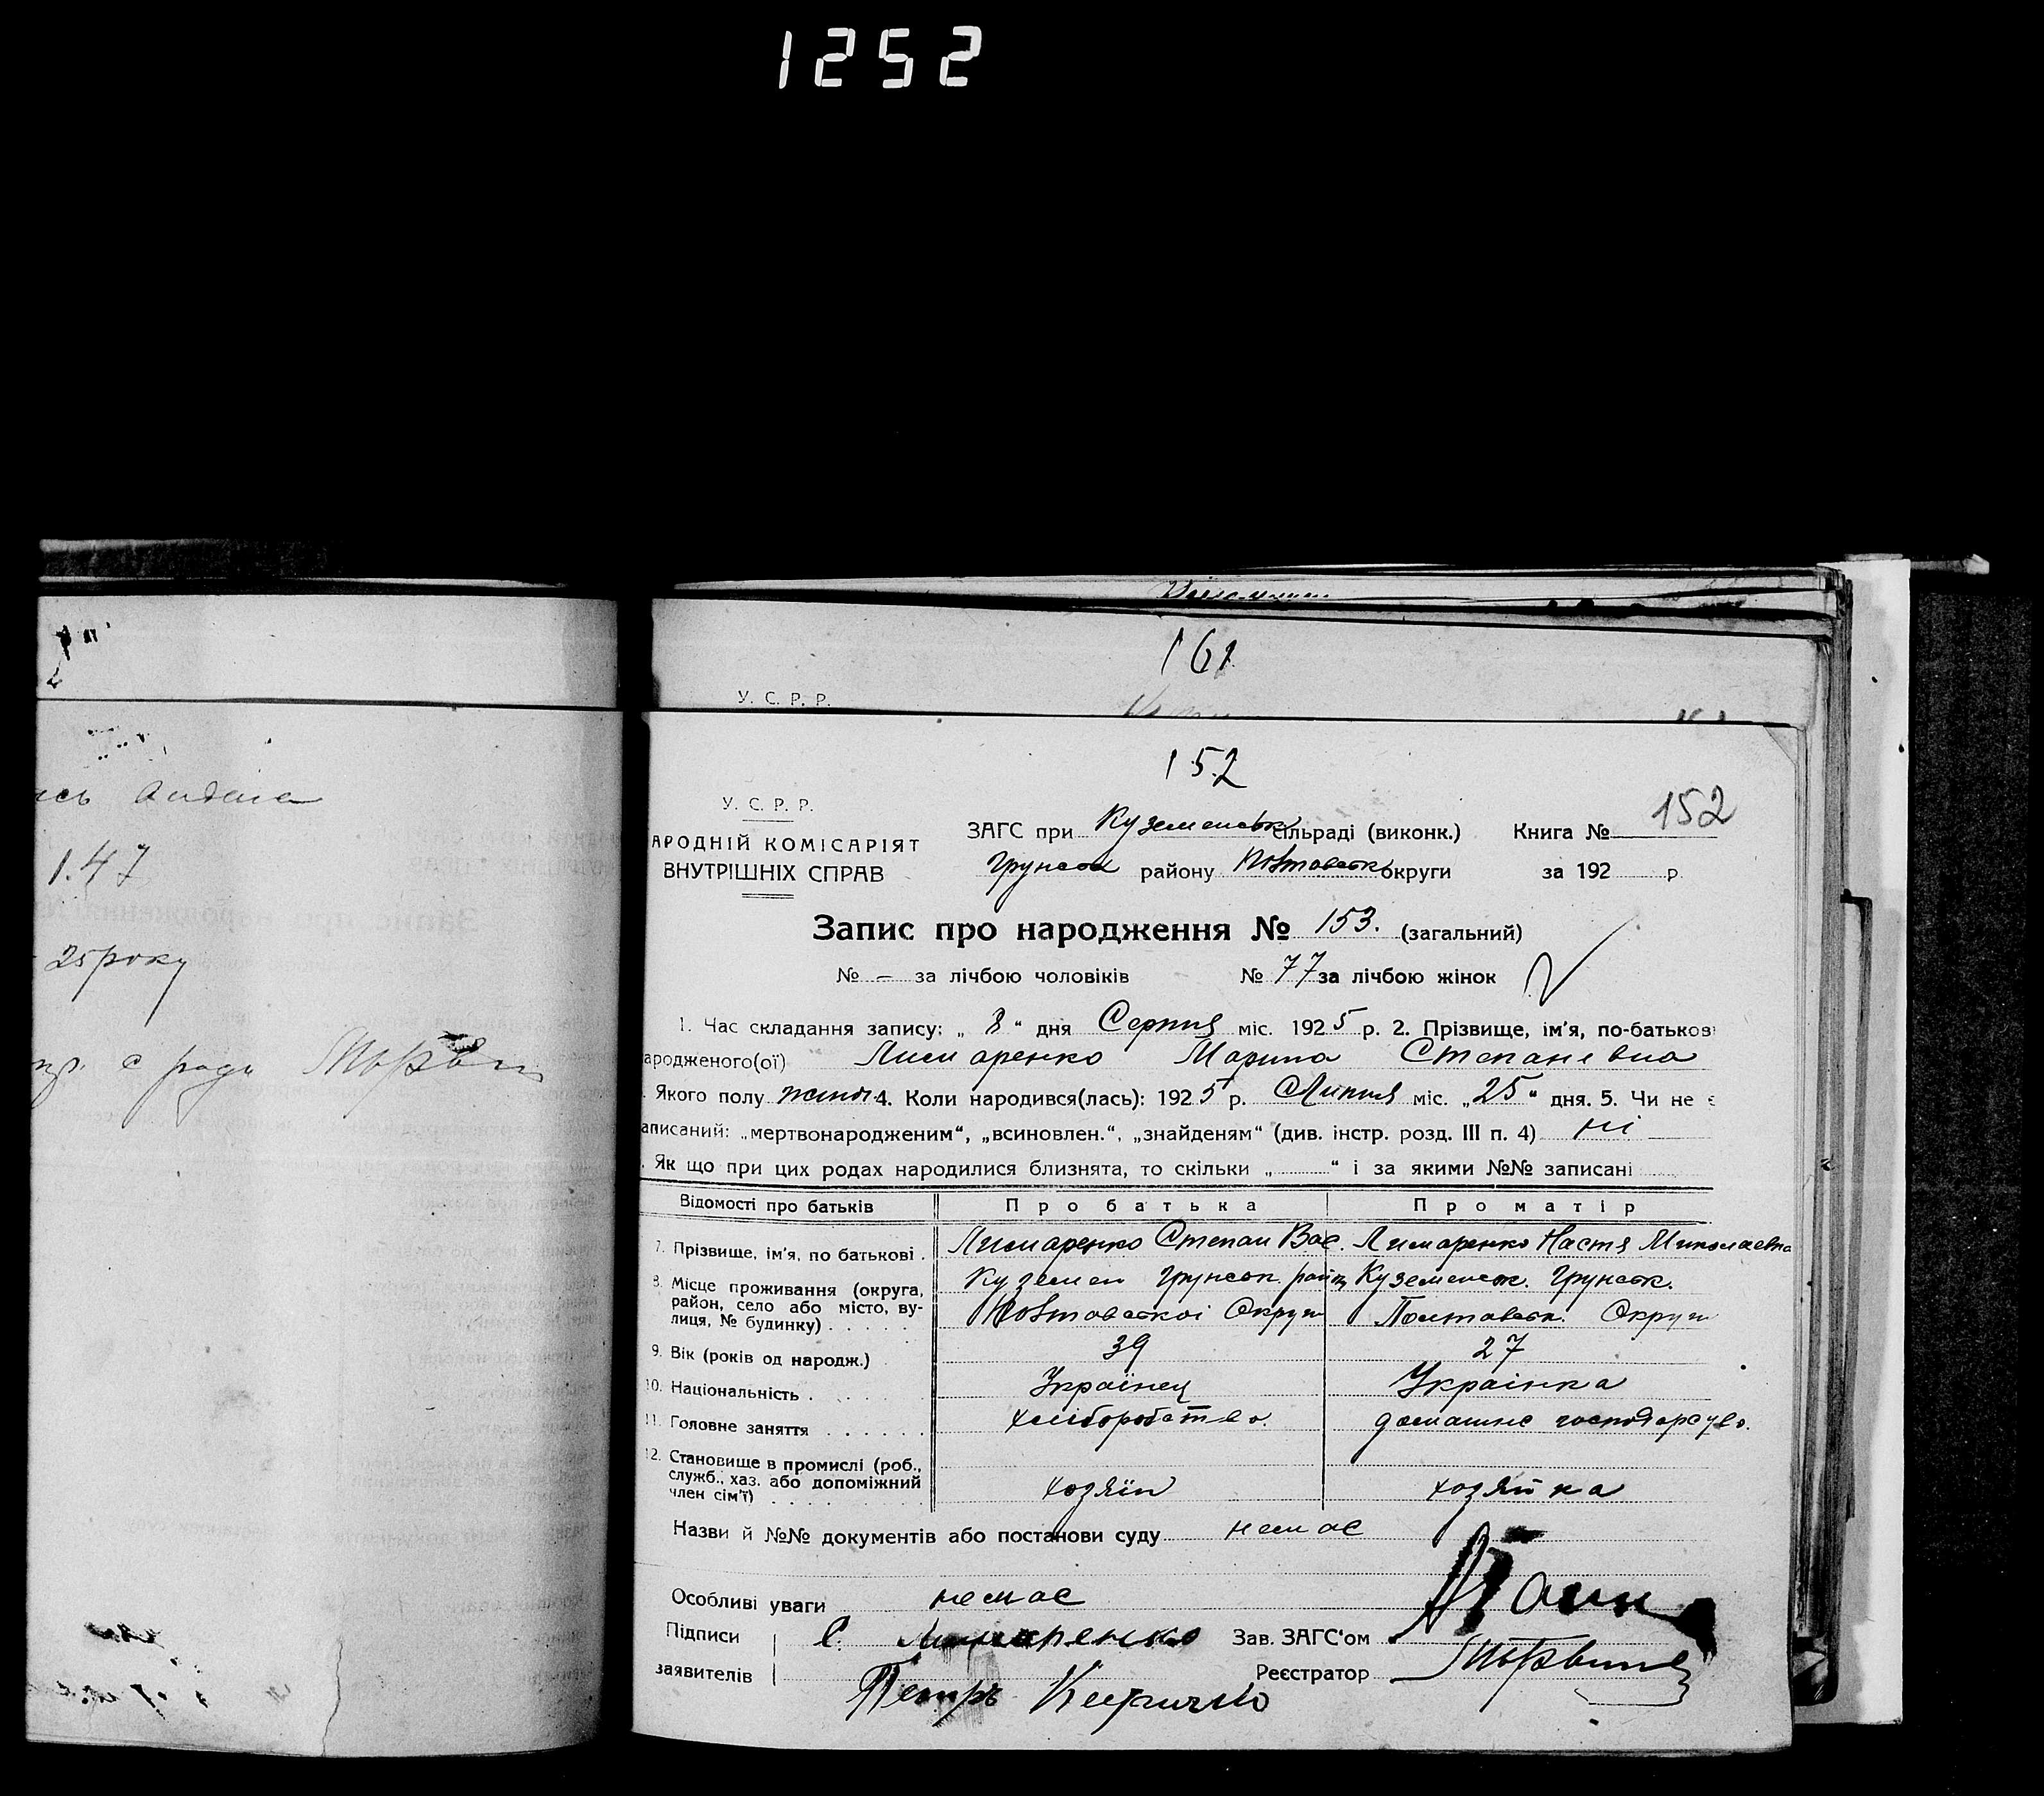 1252
161
У. С. Р. Р.
152
152
У. С. Р. Р.
АРОДНІЙ КОМІСАРІЯТ
ВНУТРІШНІХ СПРАВ
ЗАГС при Куземенськ сільраді (виконк.) Книга №
Грунськ району Полтавськ округи за 192 р.
Запис про народження № 153. (загальний)
№ – за лічбою чоловіків № 77 за лічбою жінок
1. Час складання запису: „ 8 “ дня Серпня міс. 1925 р. 2. Прізвище, ім'я, по-батькові
ародженого(ої) Лимаренко Марина Степанівна
Якого полу жіноч 4. Коли народився(лась): 1925 р. Липня міс. „25“ дня. 5. Чи не є
аписаний: „мертвонародженим“, „всиновлен.“, „знайденям“ (див. інстр. розд. III п. 4) ні
Як що при цих родах народилися близнята, то скільки „ “ і за якими №№ записані
Відомості про батьків Про батька Про матір
7. Прізвище, ім'я, по батькові . Лимаренко Степан Вас. Лимаренко Настя Миколаевна
8. Місце проживання (округа, район, село або місто, вулиця, № будинку) . . . . . Куземен Грунськ. райн Полтавської Округи Куземенськ. Грунськ. Полтавськ. Округи
9. Вік (років од народж.) 39 27
10. Національність . Українец Українка
11. Головне заняття . . . . . . хліборобство. домашнє господарство.
12. Становище в промислі (роб., служб., хаз. або допоміжний член сім'ї) . . . . хозяїн хозяйка
Назви й №№ документів або постанови суду немає
Особливі уваги немає
Підписи С. Лимаренко Зав. ЗАГС'ом
заявителів Петръ Реєстратор
1.47
25 року